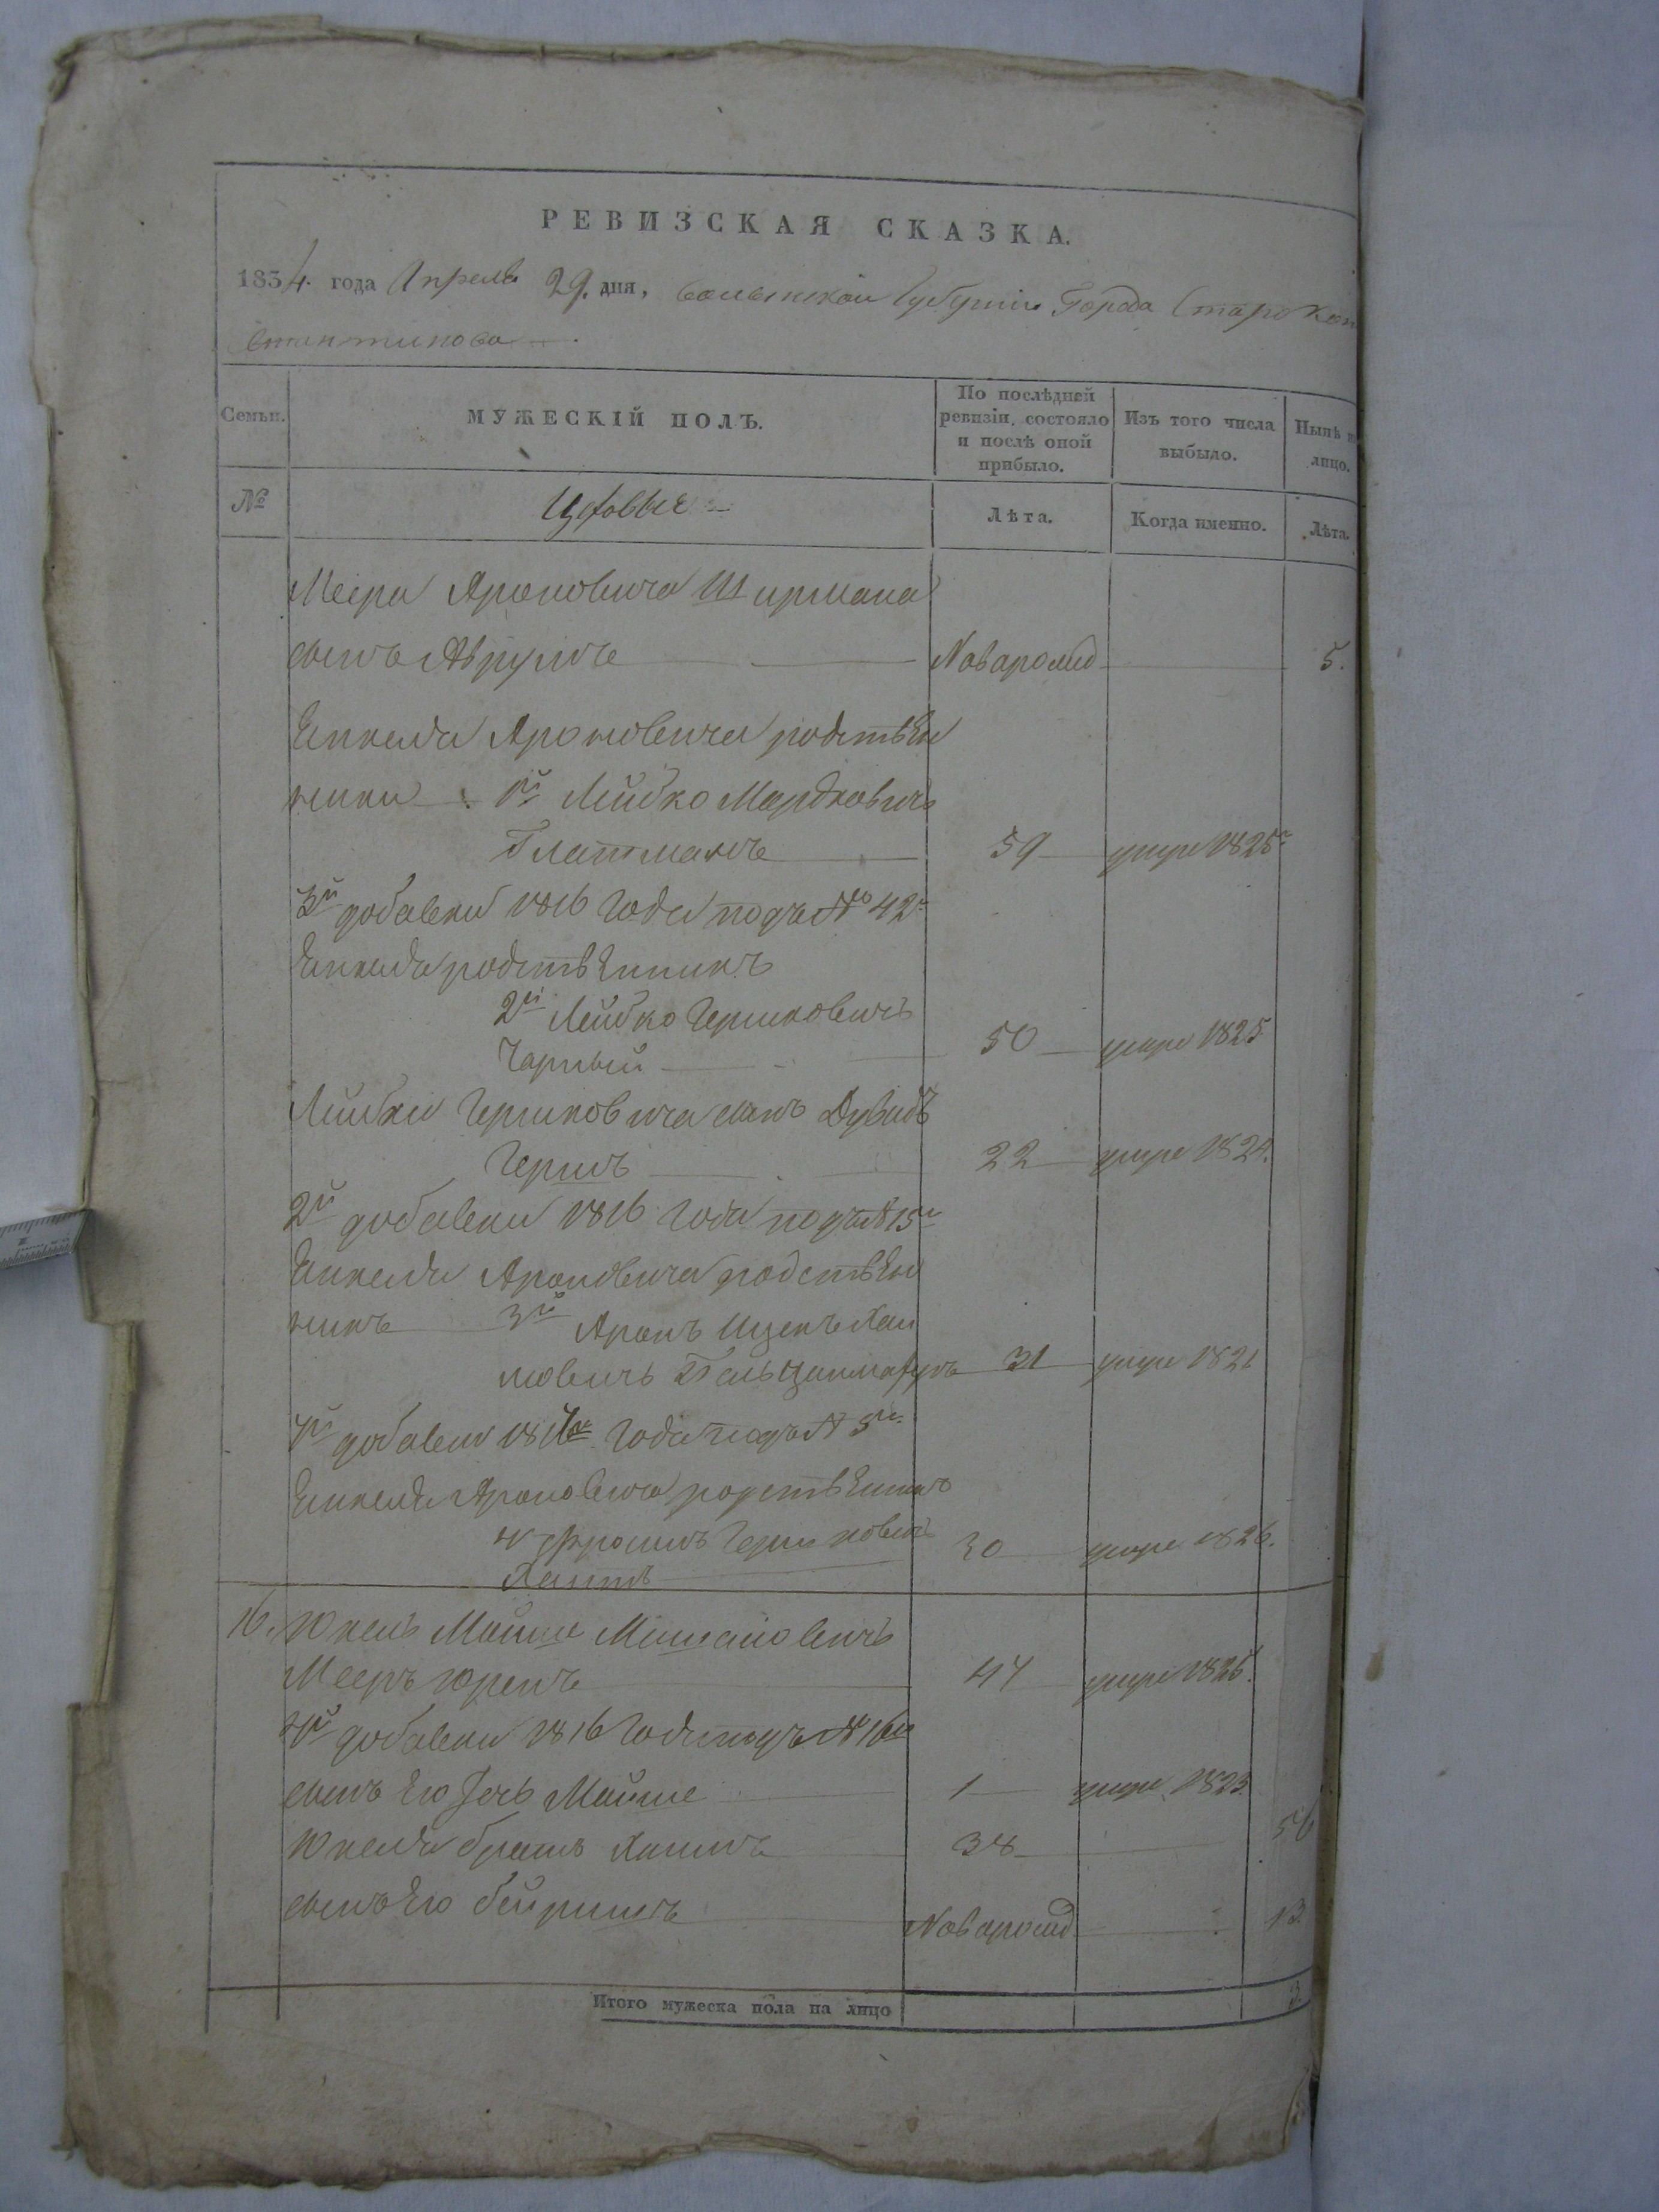 РЕВИЗСКАЯ СКАЗКА.
1834. года Апреля 29. дня, волынской Губерніи Города Старокон
стантинова
Семьи. МУЖЕСКІЙ ПОЛЪ. По послѣдней ревизіи, состояло и послѣ оной прибыло. Изъ того числа выбыло. Нынѣ на лицо.
№ Лѣта. Когда именно. Лѣта.
Меера Ароновича Ширмана
сынъ Аврумъ Новарожд 5.
Янкеля Ароновича родствѣн
ники 1й Лейбко Мардковичъ
Платманъ 59 умре 1825
3й добавки 1816 Года подъ № 42
Янкеля родствѣнникъ
2й Лейбко Гершковичъ
Чарный 50 умре 1825
Лейбки Гершковича сынъ Дувидъ
Гершъ 22 умре 1824.
2й добавки 1816 Года подъ № 15
Янкеля Ароновича родствѣн
никъ 3й Аронъ Ицекъ Хаи
мовичъ 31 умре 1821
добавки Года подъ № 5
Янкеля Ароновича родствѣнникъ
Гершковичъ 30 умре 1826.
16. Юкель Мойше
Мееръ 47 умре 1825.
добавки 1816 Года подъ № 16
сынъ Его Мойше 1 умре 1823.
Юкеля братъ Хаимъ 38 56
сынъ Его Бейришъ Новарожд 13
Итого мужеска пола на лицо 3